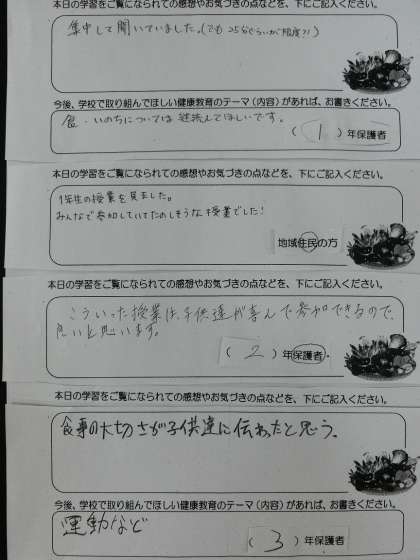 本日の学習をご覧になられての感想やお気づきの点などを、下にご記入ください。
集中して聞いていました。(でも25分ぐらいが限度?!)
今後、学校で取り組んでほしい健康教育のテーマ(内容)があれば、お書きください。
食・いのちについては継続してほしいです。
(1)年保護者
本日の学習をご覧になられての感想やお気づきの点などを、下にご記入ください。
1年生の授業を見ました。
みんなで参加していてたのしそうな授業でした!
地域住民の方
本日の学習をご覧になられての感想やお気づきの点などを、下にご記入ください。
こういった授業は、子供達が喜んで参加できるので、
良いと思います。
(2)年保護者・
本日の学習をご覧になられての感想やお気づきの点などを、下にご記入ください。
食事の大切さが子供達に伝わったと思う。
今後、学校で取り組んでほしい健康教育のテーマ(内容)があれば、お書きください。
運動など
(3)年保護者